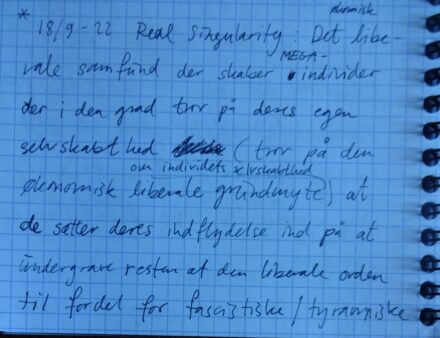 * 18/9-22 Real Singularity: Det libe-
rale samfund der skaber MEGA-individer
der i den grad tror på deres egen
selvskabthed (tror på den
økonomisk liberale grundmyte om individets selvskabthed) at
de sætter deres indflydelse ind på at
undergrave resten af den liberale orden
til fordel for fascistiske / tyranniske